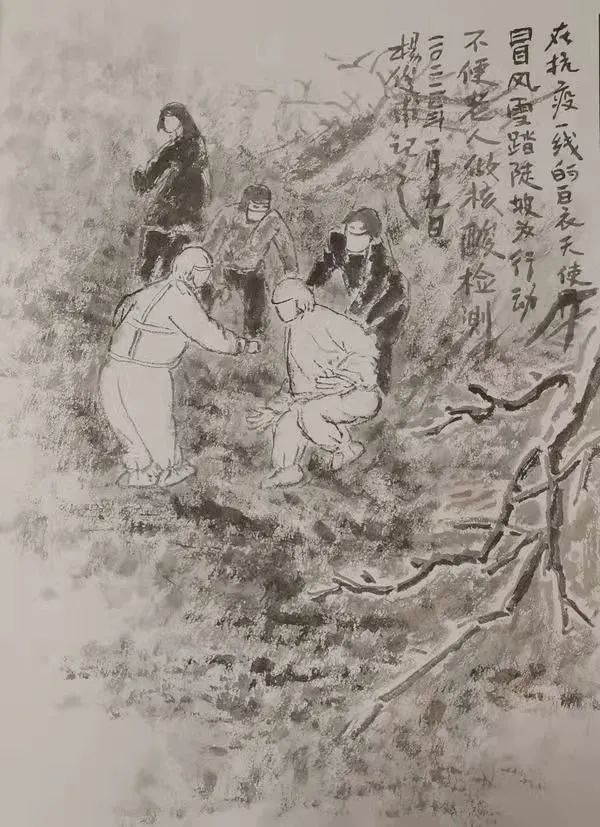 在抗疫一线的白衣天使
冒风雪踏陡坡为行动
不便老人做核酸检測
二〇二二年一月九日
楊俊记之